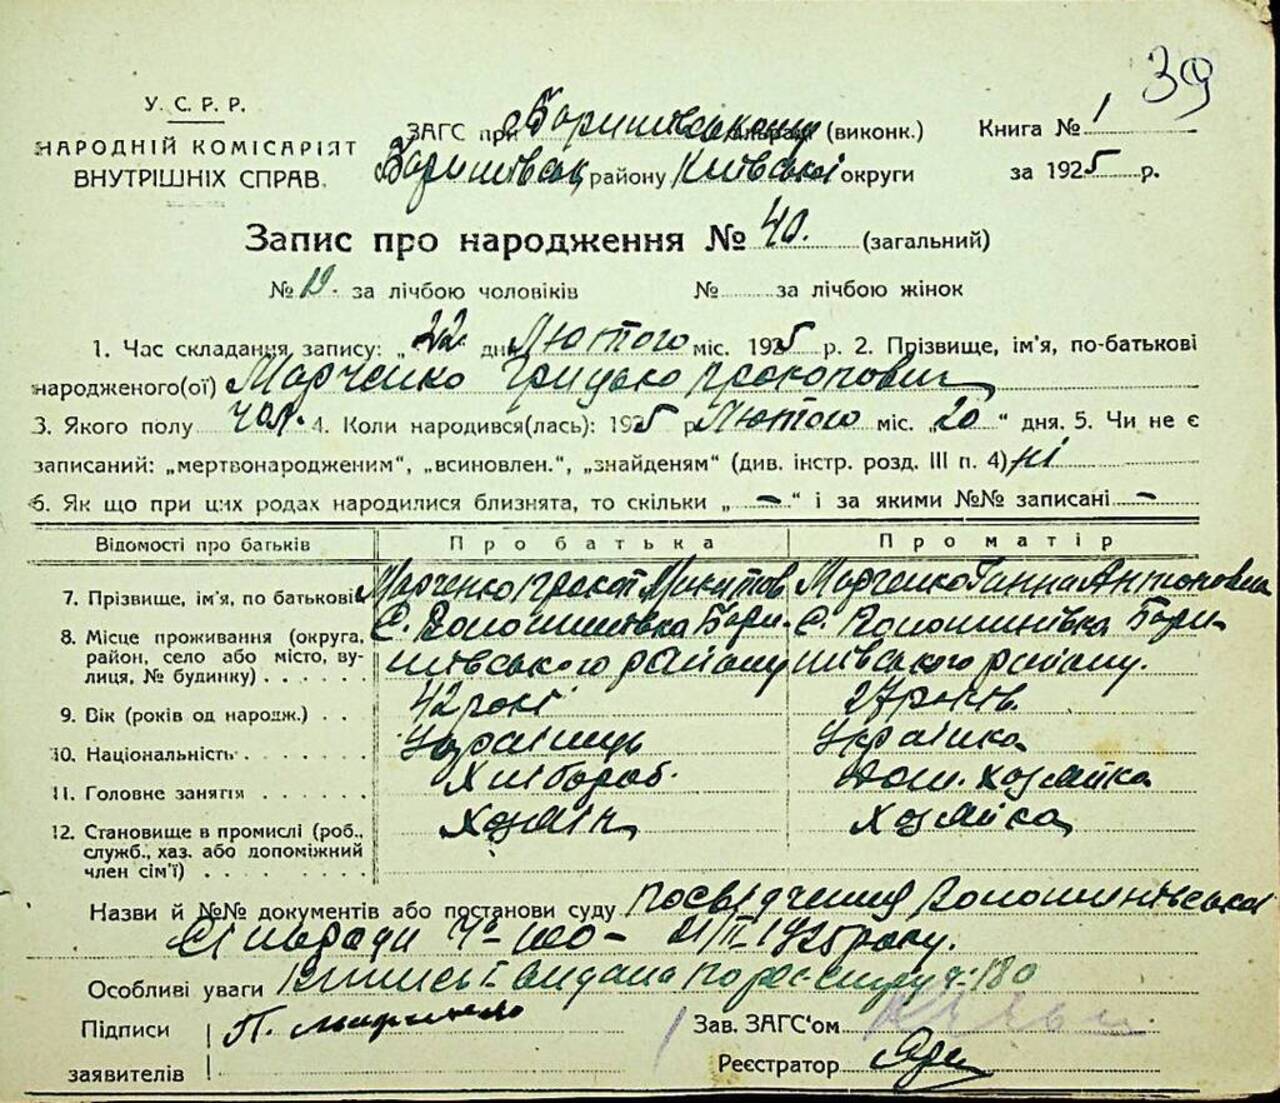 39
У. С. Р. Р.
НАРОДНІЙ КОМІСАРІЯТ
ВНУТРІШНІХ СПРАВ.
ЗАГС при Баришівському (виконк.)
Баришівськ. району Київської округи
Книга № 1
за 1925 р.
Запис про народження № 40. (загальний)
№ 19. за лічбою чоловіків № за лічбою жінок
1. Час складання запису: „22 дня Лютого міс. 1925 р. 2. Прізвище, ім'я, по-батькові
народженого(ої) Марченко Грицько Прокопович
3. Якого полу чол. 4. Коли народився(лась): 1925 р Лютого міс. „20“ дня. 5. Чи не є
записаний: „мертвонародженим“, „всиновлен.“, „знайденям“ (див. інстр. розд. III п. 4) ні
6. Як що при цих родах народилися близнята, то скільки „—“ і за якими №№ записані —
Відомості про батьків Про батька Про матір
7. Прізвище, ім'я, по батькові Марченко Прокоп Микитов. Марченко Ганна Антоновна
8. Місце проживання (округа, район, село або місто, вулиця, № будинку) С. Волошинівка Баришівського району С. Волошинівка Баришівського району.
9. Вік (років од народж.) 42 рокі 27 років.
10. Національність Українець Українка
11. Головне заняття Хлібороб. Дом. хозяйка
12. Становище в промислі (роб., служб., хаз. або допоміжний член сім'ї) Хозяін Хозяйка
Назви й №№ документів або постанови суду Посвідчення Волошинівської
Сільради Ч° 100 - 21/II-1925 року.
Особливі уваги Випись видана по реєстру ч. 180
Підписи
заявителів
П. Марченко
Зав. ЗАГС'ом
Реєстратор